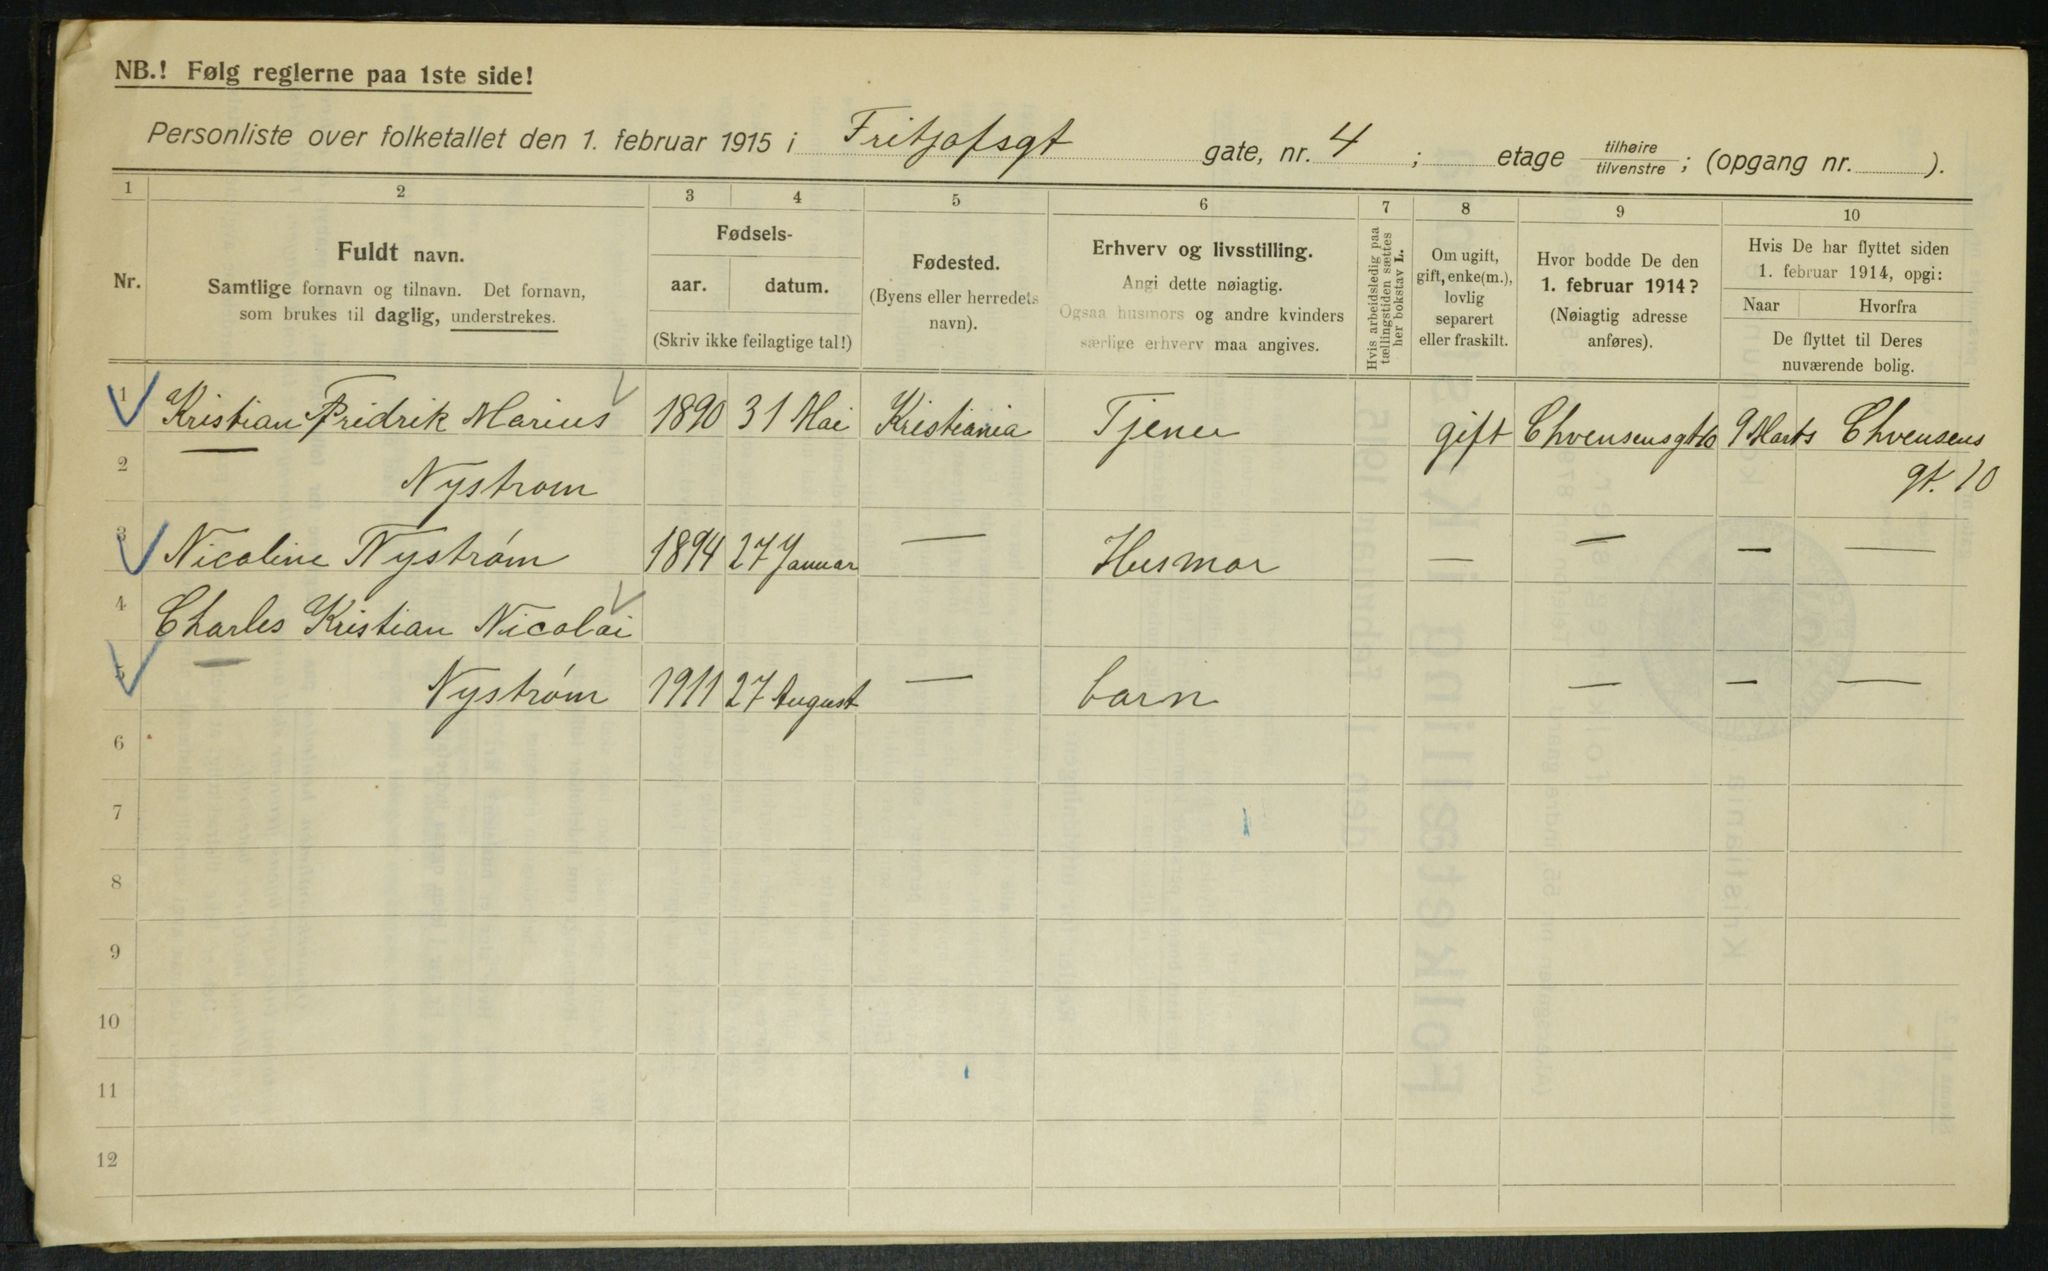 NB.! Følg reglerne paa 1ste side!
Personliste over folketallet den 1. februar 1915 i Fritjofsgt gate, nr. 4 ; etage tilhøire / tilvenstre ; (opgang nr. ).
1 2 3 4 5 6 7 8 9 10
Nr.
Fuldt navn.
Samtlige fornavn og tilnavn. Det fornavn,
som brukes til daglig, understrekes.
Fødsels-
aar. datum.
(Skriv ikke feilagtige tal!)
Fødested.
(Byens eller herredets
navn).
Erhverv og livsstilling.
Angi dette nøiagtig.
Ogsaa husmors og andre kvinders
særlige erhverv maa angives.
Hvis arbeidsledig paa
tællingstiden sættes
her bokstav L.
Om ugift,
gift, enke(m.),
lovlig
separert
eller fraskilt.
Hvor bodde De den
1. februar 1914?
(Nøiagtig adresse
anføres).
Hvis De har flyttet siden
1. februar 1914, opgi:
Naar Hvorfra
De flyttet til Deres
nuværende bolig.
1 Kristian Fridrik Marius 1890 31 Mai Kristiania Tjener gift Chvensensgt 10 9 Marts Chvensens
2 Nystrom gt. 10
3 Nicoline Nystrøm 1894 27 Januar — Husmor — — — —
4 Charles Kristian Nicolai
5 Nystrøm 1911 27 August — barn — — —
6
7
8
9
10
11
12